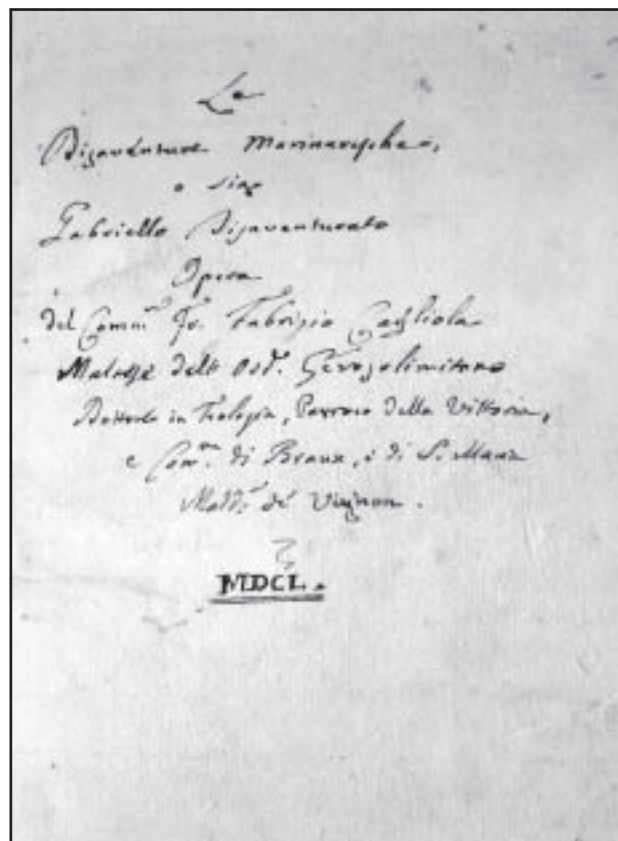 Le
Disaventure Marinaresche,
o sia
Gabriello Disaventurato
Opera
del Comm.r Fr. Fabrizio Cagliola
Maltese dell' Ord.e Gerosolimitano
Dottore in Teologia, Parroco della Vittoria,
e Com.re di Braux, e di S.
de'
MDCL.